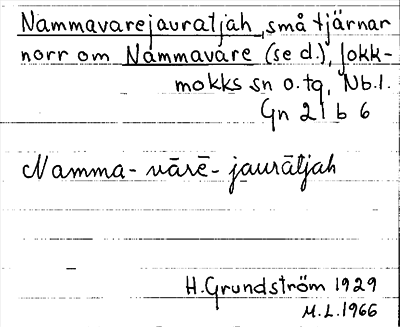 Nammavarejauratjah, små tjärnar
norr om Nammavare (se d.), Jokk-
mokks sn o. tg, Nb.l.
Gn 21 b 6
Namma-vārē-jaurātjah
H. Grundström 1929
M.L. 1966